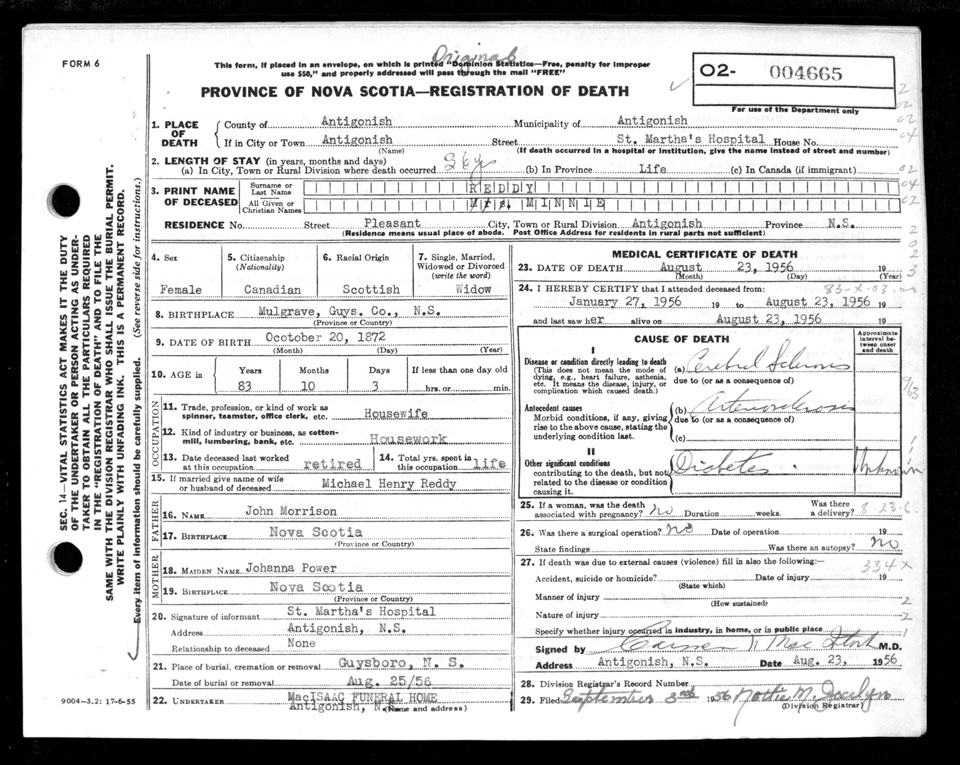 Original
FORM 6
This form, if placed in an envelope, on which is printed "Dominion Statistics—Free, penalty for improper
use $50," and properly addressed will pass through the mail "FREE"
02- 004665
For use of the Department only
PROVINCE OF NOVA SCOTIA—REGISTRATION OF DEATH
1. PLACE OF DEATH { County of Antigonish Municipality of Antigonish
If in City or Town Antigonish Street St. Martha's Hospital House No.
(Name) (If death occurred in a hospital or institution, give the name instead of street and number)
2. LENGTH OF STAY (in years, months and days)
(a) In City, Town or Rural Division where death occurred (b) In Province Life (c) In Canada (if immigrant)
3. PRINT NAME OF DECEASED { Surname or Last Name REDDY
All Given or Christian Names Mrs. MINNIE
RESIDENCE No. Street Pleasant City, Town or Rural Division Antigonish Province N.S.
(Residence means usual place of abode. Post Office Address for residents in rural parts not sufficient)
4. Sex
Female
5. Citizenship
(Nationality)
Canadian
6. Racial Origin
Scottish
7. Single, Married,
Widowed or Divorced
(write the word)
Widow
8. BIRTHPLACE Mulgrave, Guys. Co., N.S.
(Province or Country)
9. DATE OF BIRTH Ocotober 20, 1872
(Month) (Day) (Year)
10. AGE in Years Months Days If less than one day old
83 10 3 hrs. or min.
OCCUPATION
11. Trade, profession, or kind of work as
spinner, teamster, office clerk, etc. Housewife
12. Kind of industry or business, as cotton-
mill, lumbering, bank, etc. Housework
13. Date deceased last worked
at this occupation retired
14. Total yrs. spent in
this occupation life
15. If married give name of wife
or husband of deceased Michael Henry Reddy
FATHER
16. NAME John Morrison
17. BIRTHPLACE Nova Scotia
(Province or Country)
MOTHER
18. MAIDEN NAME Johanna Power
19. BIRTHPLACE Nova Scotia
(Province or Country)
20. Signature of informant St. Martha's Hospital
Address Antigonish, N.S.
Relationship to deceased None
21. Place of burial, cremation or removal Guysboro, N. S.
Date of burial or removal Aug. 25/56
22. UNDERTAKER MacISAAC FUNERAL HOME
Antigonish, N.S.
(Name and address)
MEDICAL CERTIFICATE OF DEATH
23. DATE OF DEATH August 23, 1956 19
(Month) (Day) (Year)
24. I HEREBY CERTIFY that I attended deceased from:
January 27, 1956 19 to August 23, 1956 19
and last saw her alive on August 23, 1956 19
CAUSE OF DEATH
Approximate
interval be-
tween onset
and death
I
Disease or condition directly leading to death
(This does not mean the mode of
dying, e.g., heart failure, asthenia,
etc. It means the disease, injury, or
complication which caused death.)
(a) Cerebral Sclerosis
due to (or as a consequence of)
Antecedent causes
Morbid conditions, if any, giving
rise to the above cause, stating the
underlying condition last.
(b) Arteriosclerosis
due to (or as a consequence of)
(c)
II
Other significant conditions
contributing to the death, but not
related to the disease or condition
causing it.
Diabetes Unknown
25. If a woman, was the death
associated with pregnancy? no Duration weeks. Was there
a delivery?
26. Was there a surgical operation? no Date of operation 19
State findings Was there an autopsy? no
27. If death was due to external causes (violence) fill in also the following:—
334X
Accident, suicide or homicide? Date of injury 19
(State which)
Manner of injury
(How sustained)
Nature of injury
Specify whether injury occurred in industry, in home, or in public place
Signed by M.D.
Address Antigonish, N.S. Date Aug. 23, 1956
28. Division Registrar's Record Number
29. Filed September 3rd 1956
(Division Registrar)
SEC. 14—VITAL STATISTICS ACT MAKES IT THE DUTY
OF THE UNDERTAKER OR PERSON ACTING AS UNDER-
TAKER TO OBTAIN ALL THE PARTICULARS REQUIRED
IN THE "REGISTRATION OF DEATH" AND TO FILE THE
SAME WITH THE DIVISION REGISTRAR WHO SHALL ISSUE THE BURIAL PERMIT.
WRITE PLAINLY WITH UNFADING INK. THIS IS A PERMANENT RECORD.
Every item of information should be carefully supplied. (See reverse side for instructions.)
9004-3.2: 17-6-55